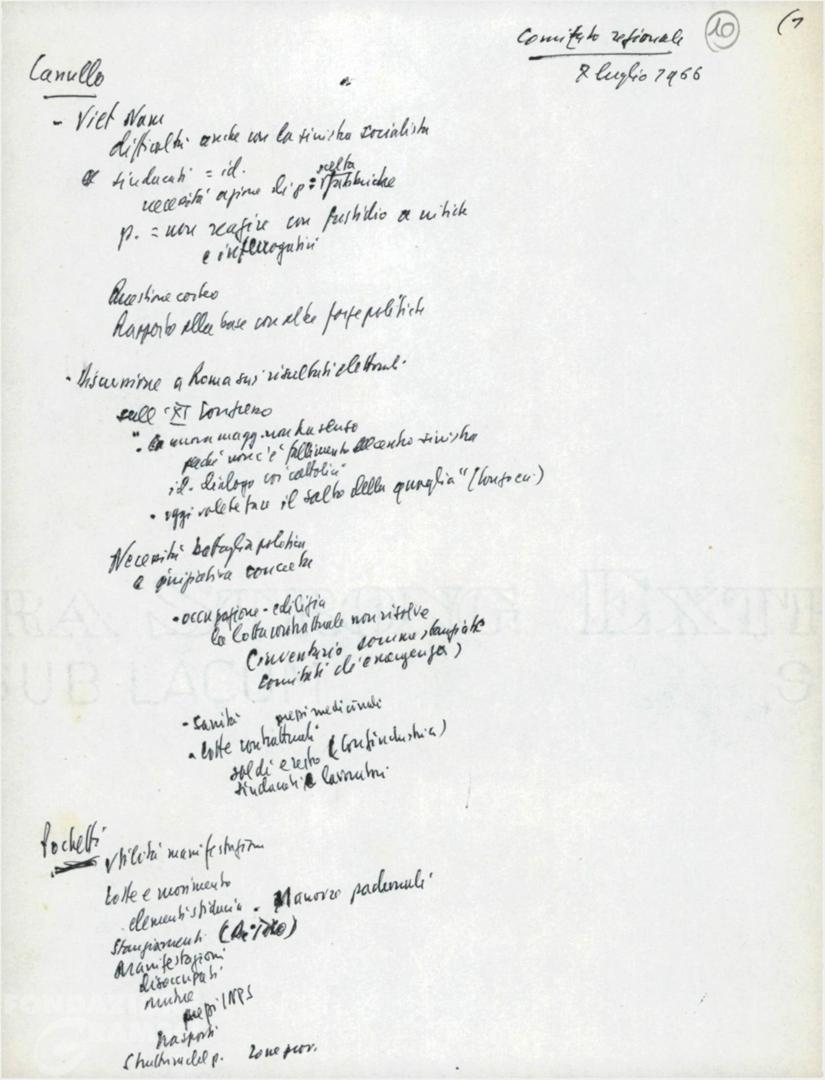 Comitato regionale
10
7 luglio 1966
Canullo
- Viet Nam
difficoltà anche con la sinistra socialista
sindacati = id.
scelta
necessità azione di p:
p. = non reagire con fastidio a critiche
e interrogativi
Questione corteo
Rapporto alla base con altre forze politiche
Discussione a Roma sui risultati elettorali
sull' XI Congresso
". la nuova magg. non ha senso
perché non c'è fallimento del centro sinistra
id. dialogo coi cattolici"
. oggi volete fare il salto della quaglia"
Necessità battaglia politica
a iniziativa concreta
. occupazione - edilizia
la lotta contrattuale non risolve
(inventario somme stanziate
comitati di emergenza)
- sanità prezzi medicinali
. lotte contrattuali
soldi e resto (Confindustria)
sindacati e lavoratori
Pochetti
utilità manifestazioni
lotte e movimento
elementi sfiducia. Manovre padronali
stanziamenti
Manifestazioni
disoccupati
mutue
INPS
trasporti
strutture del p. zone prov.
FONDAZIONE